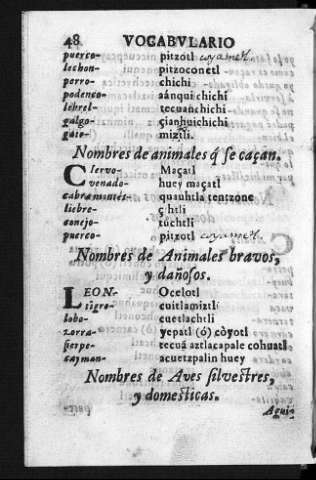 48. VOCABVLARIO
puerco- pitzotl coyametl.
lechon- pitzoconetl
perro- chichi
podenco- aánquichichi
lebrel- tecuanchichi
galgo- çianhuichichi
gato- miztli.
Nombres de animales q̃ se caçan.
Ciervo- Maçatl
venado- huey maçatl
cabramõtés- quauhtla tentzone
liebre- çihtli
conejo- tuchtli
puerco- pitzotl coyametl.
Nombres de Animales bravos,
y dañosos.
LEON- Ocelotl
tigre- cuitlamiztli
lobo- cuetlachtli
zorra- yepatl (ó) còyotl
sierpe- tecuá aztlacapale cohuatl
cayman- acuetzpalin huey
Nombres de Aves silvestres,
y domesticas.
Aqui-